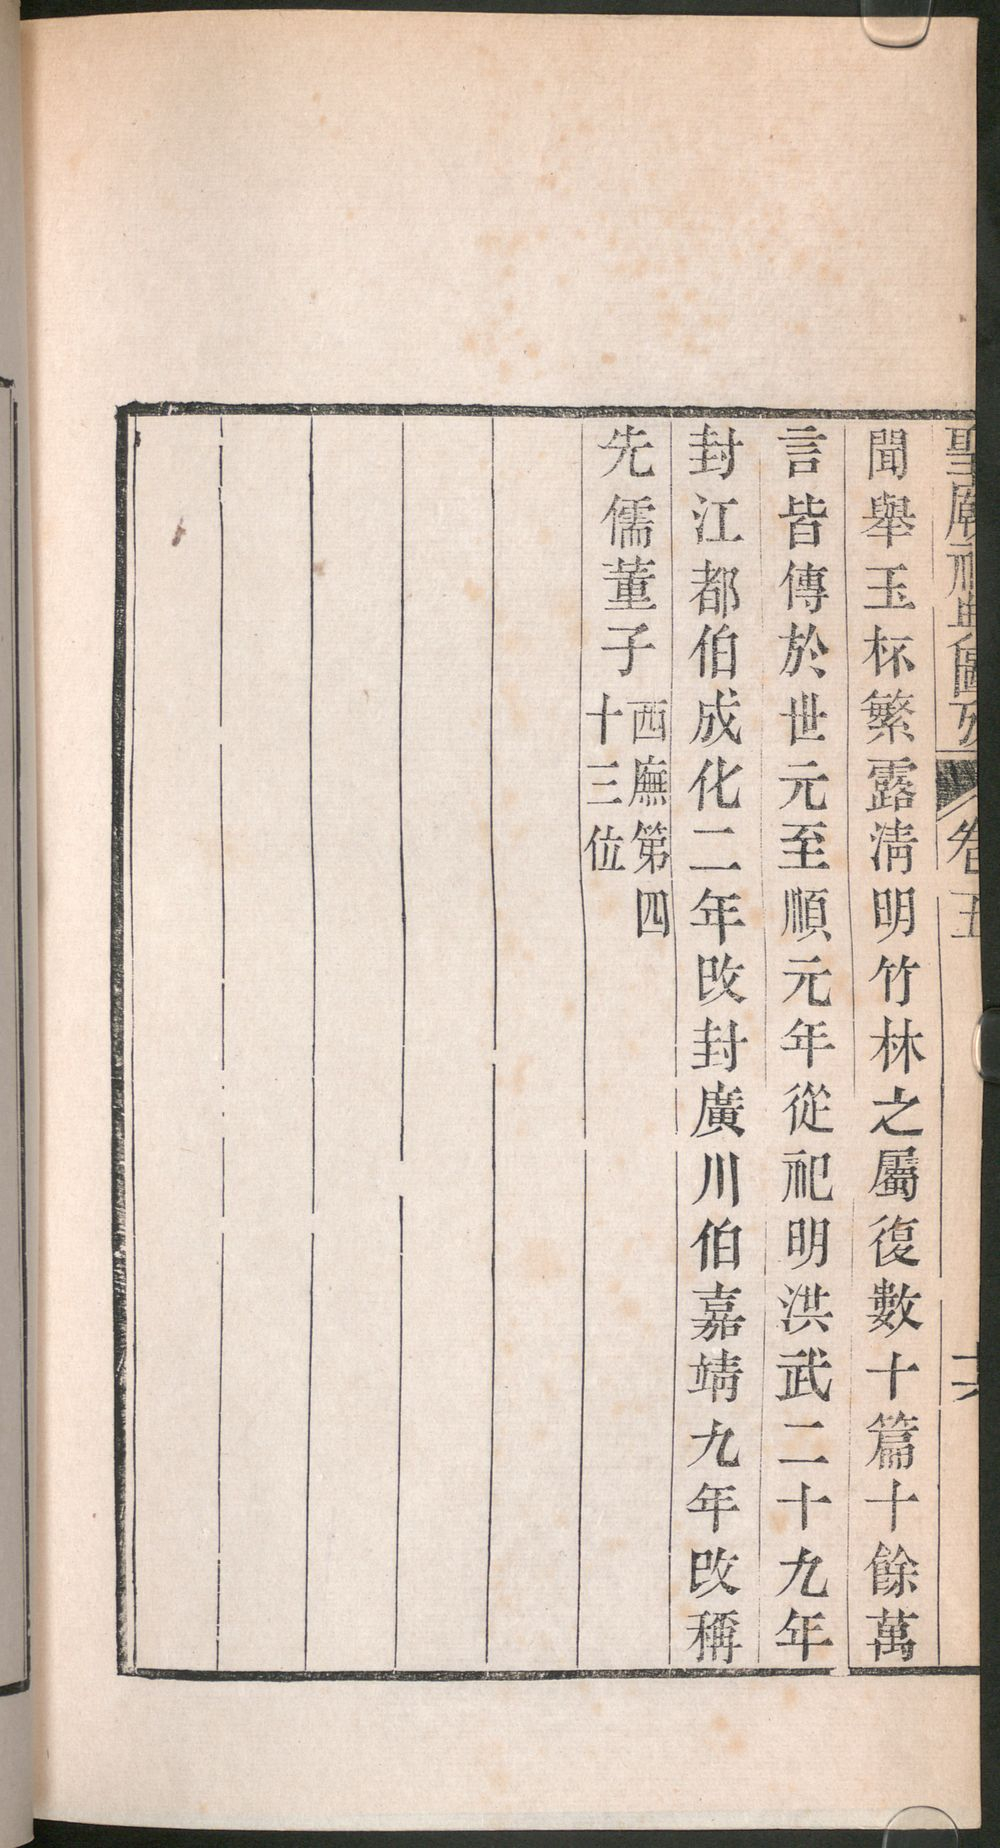 聖廟祀典圖攷 卷五
聞舉玉杯繁露淸明竹林之屬復數十篇十餘萬
言皆傳於世元至順元年從祀明洪武二十九年
封江都伯成化二年改封廣川伯嘉靖九年改稱
先儒董子
西廡第四
十三位